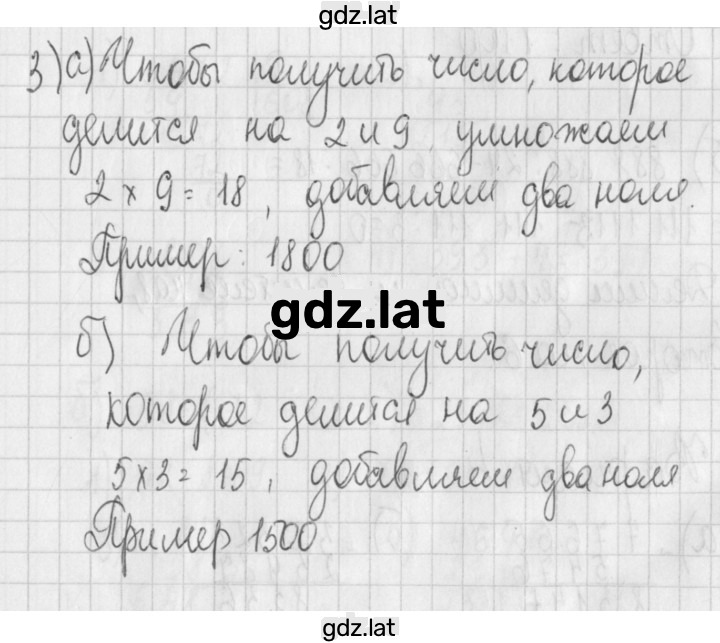 gdz.lat
3) а) Чтобы получить число, которое
делится на 2 и 9 умножаем
2 × 9 = 18, добавляем два ноля.
Пример: 1800
gdz.lat
б) Чтобы получить число,
которое делится на 5 и 3
5 × 3 = 15, добавляем два ноля
Пример 1500
gdz.lat